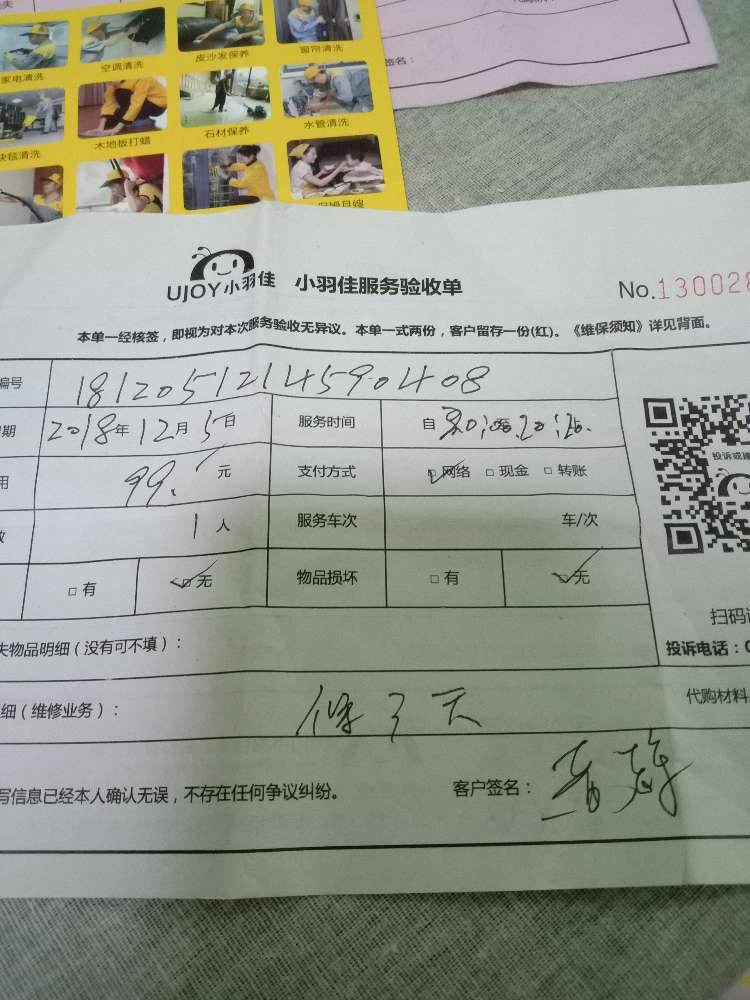 签名：
家电清洗 空调清洗 皮沙发保养 窗帘清洗
地毯清洗 木地板打蜡 石材保养 水管清洗
UJOY小羽佳 小羽佳服务验收单 No.130028
本单一经核签，即视为对本次服务验收无异议。本单一式两份，客户留存一份(红)。《维保须知》详见背面。
编号 181205121459040408
期 2018年12月5日 服务时间 自
用 99. 元 支付方式 网络 现金 转账
1人 服务车次 车/次
有 无 物品损坏 有 无
投诉或建
失物品明细（没有可不填）：
扫码
投诉电话：0
细（维修业务）： 保3天
代购材料
写信息已经本人确认无误，不存在任何争议纠纷。 客户签名：